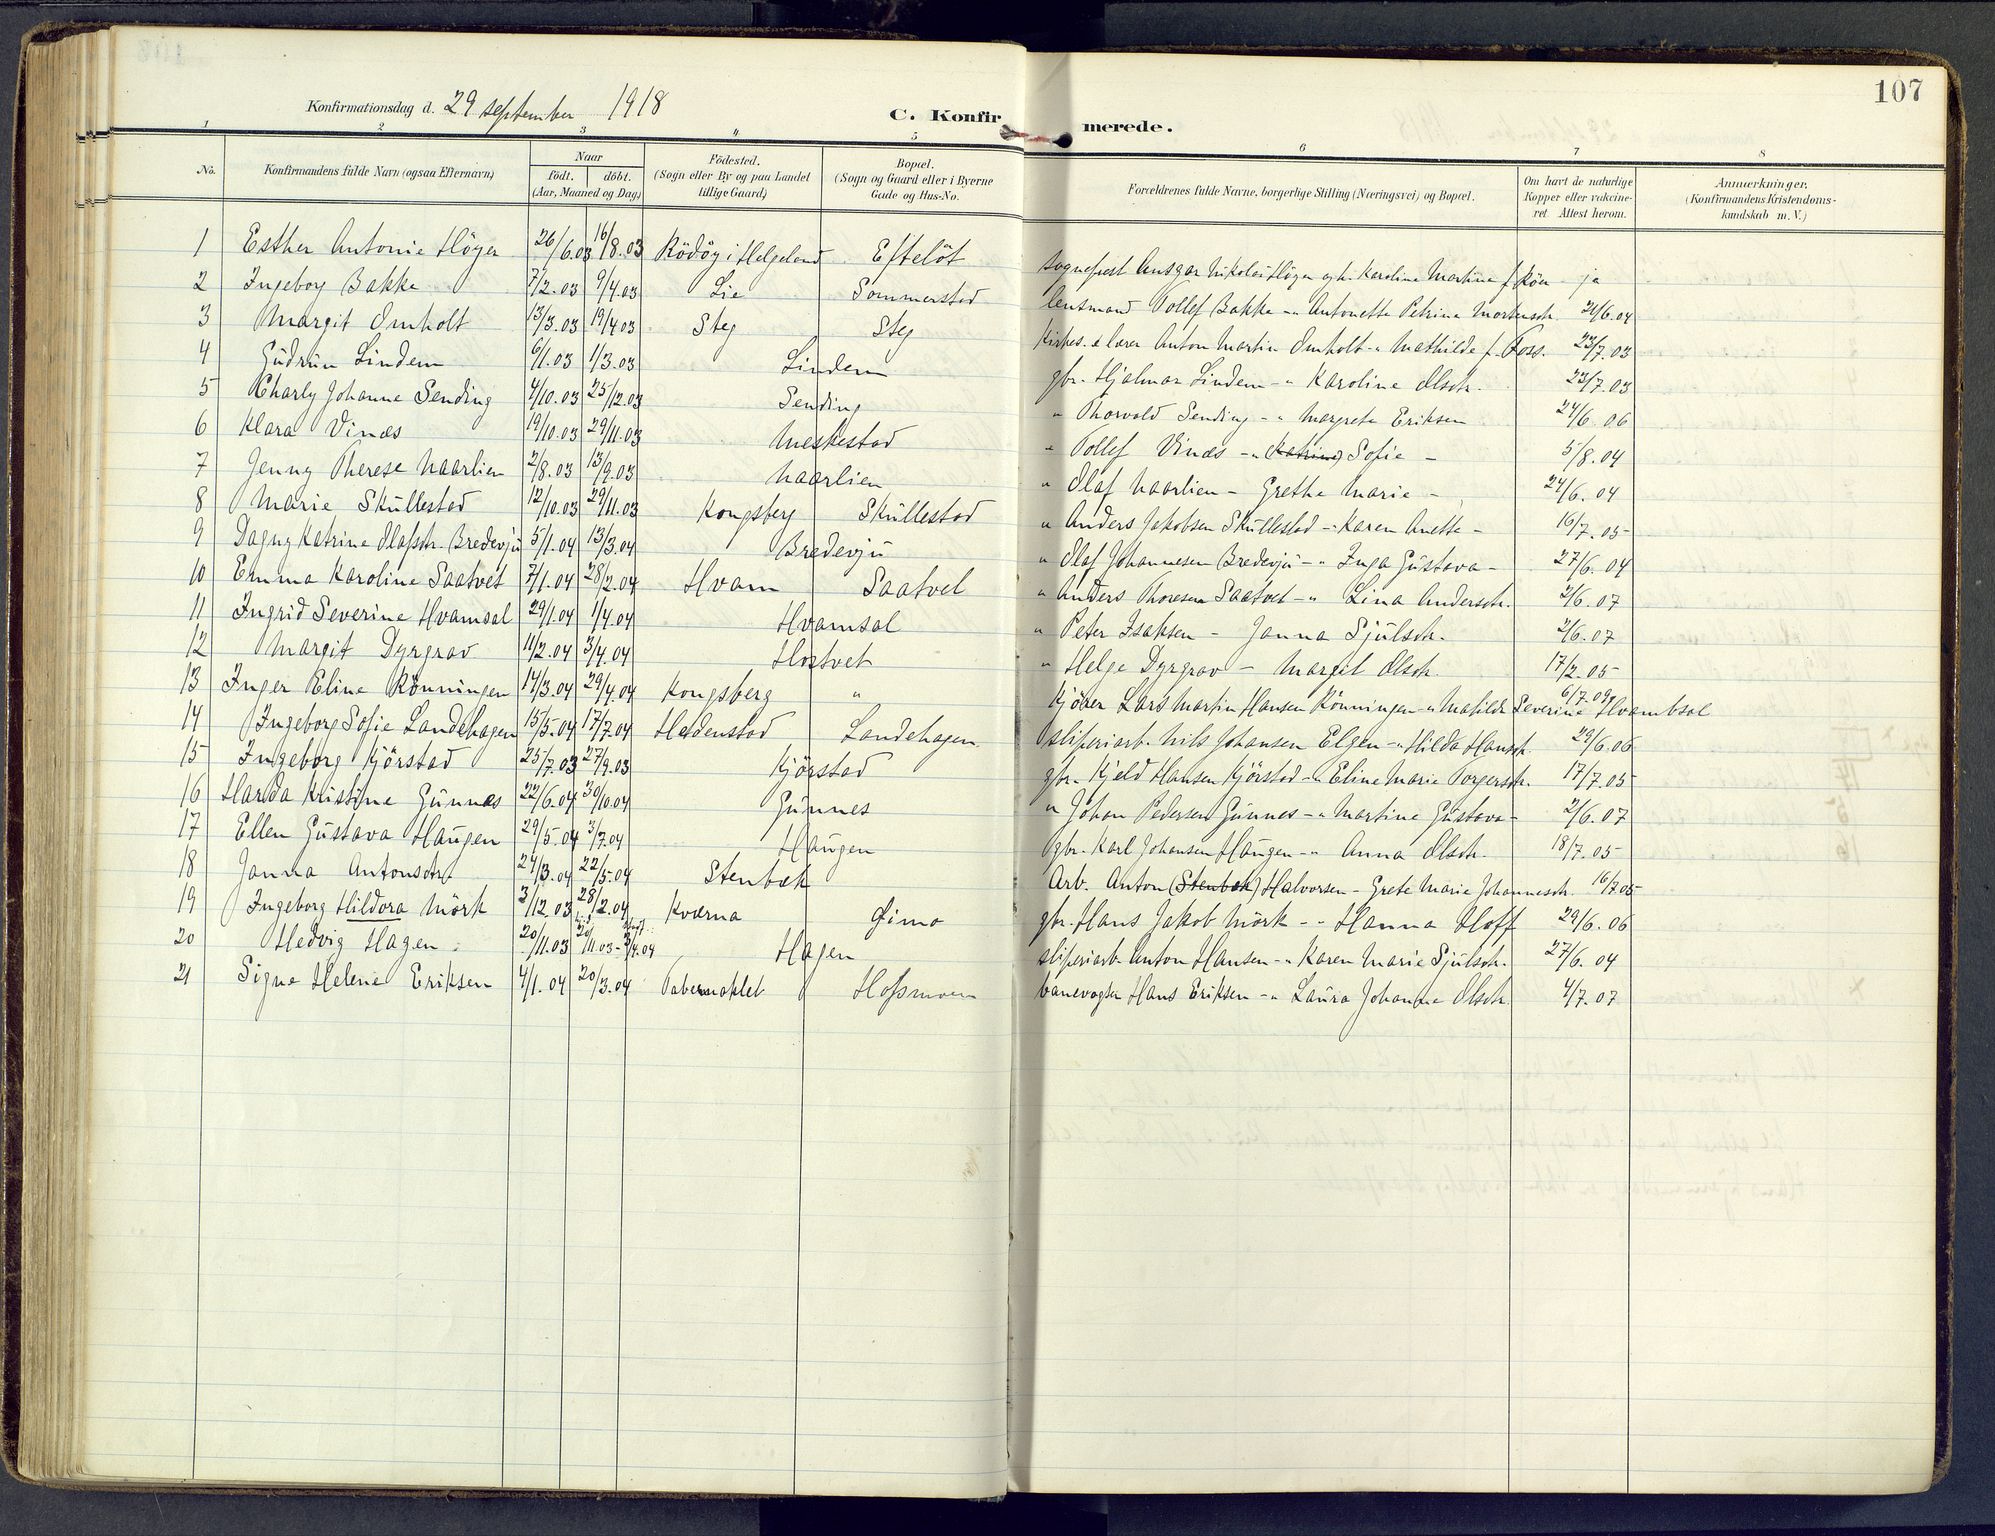 107
Konfirmationsdag d. 29 september 1918
C. Konfirmerede.
1 2 3 4 5 6 7 8
No. Konfirmandens fulde Navn (ogsaa Efternavn) Naar födt. döbt. (Aar, Maaned og Dag) Födested. (Sogn eller By og paa Landet tillige Gaard) Bopæl. (Sogn og Gaard eller i Byerne Gade og Hus-No. Forældrenes fulde Navne, borgerlige Stilling (Næringsvei) og Bopæl. Om havt de naturlige Kopper eller vakcineret. Attest herom. Anmærkninger. (Konfirmandens Kristendomskundskab m. V.)
1 Esther Antonie Höyer 26/6.03 16/8.03 Rödöy i Helgeland Efteløt sogneprest Ansgar Nikolai Höyer og h. Karoline Martine f. ja
2 Ingeborg Bakke 7/2.03 9/4.03 Lie Sommerstad lensmand Tollef Bakke -"- Antonette Petrine Mortensdr. 21/6.04
3 Margit Omholt 13/3.03 19/4.03 Steg Steg Kirkes. & lærer Anton Martin Omholt -"- Mathilde f. Foss. 23/7.03
4 Gudrun Lindem 6/1.03 1/3.03 Lindem gbr. Hjalmar Lindem -"- Karoline Olsdr. 23/7.03
5 Charly Johanne Sending 4/10.03 25/12.03 Sending " Thorvald Sending -"- Margrete Eriksen 24/6.06
6 Klara Vinæs 19/10.03 29/11.03 Meskestad " Tollef Vinæs -"- (Katrine) Sofie - 5/8.04
7 Jenny Therese Naarlien 2/8.03 13/9.03 Naarlien " Olaf Naarlien - Grethe Marie - 24/6.04
8 Marie Skullestad 12/10.03 29/11.03 Kongsberg Skullestad " Anders Jakobsen Skullestad -"- Karen Anette - 16/7.05
9 Dagny Katrine Olafsdr. Bredevju 5/1.04 13/3.04 Bredevju " Olaf Johannesen Bredevju -"- Inga Gustava - 27/6.04
10 Emma Karoline Saatvet 7/1.04 28/2.04 Hvam Saatvet " Anders Thoresen Saatvet -"- Lina Andersdr. 2/6.07
11 Ingrid Severine Hvamsal 29/1.04 1/4.04 Hvamsal " Peter Isaksen - Janna Sjulsdr. 2/6.07
12 Margit Dyrgrav 11/2.04 3/4.04 Hostvet " Helge Dyrgrav - Margit Olsdr. 17/2.05
13 Inger Eline Rönningen 14/3.04 29/4.04 Kongsberg " Kjörer Lars Martin Hansen Rönningen -"- Matilde Severine Hvambsal 6/7.09
14 Ingeborg Sofie Landehagen 15/5.04 17/7.04 Hedenstad Landehagen sliperiarb. Nils Johansen Elgen -"- Hilda Hansdr. 29/6.06
15 Ingeborg Kjörstad 25/7.03 27/9.03 Kjörstad gbr. Kjeld Hansen Kjörstad -"- Eline Marie Torgersdr. 17/7.05
16 Harda Kristine Gunnes 22/6.04 30/10.04 Gunnes " Johan Pedersen Gunnes -"- Martine Gustava - 2/6.07
17 Ellen Gustava Haugen 29/5.04 3/7.04 Haugen gbr. Karl Johansen Haugen -"- Anna Olsdr. 18/7.05
18 Janna Antonsdr. 24/3.04 22/5.04 Stenbæk Arb. Anton (Stenbæk) Halvorsen - Grete Marie Johannesdr. 16/7.05
19 Ingeborg Hildora Mörk 3/12.03 28/2.04 Kværna Gimo gbr. Hans Jakob Mörk -"- Hanna Hoff 29/6.06
20 Hedvig Hagen 20/11.03 20/11.03 - 3/4.04 Hagen sliperiarb. Anton Hansen -"- Karen Marie Sjulsdr. 27/6.04
21 Signe Helene Eriksen 4/1.04 20/3.04 Tabernaklet Hofsmoen banevogter Hans Eriksen -"- Laura Johanne Olsdr. 4/7.07